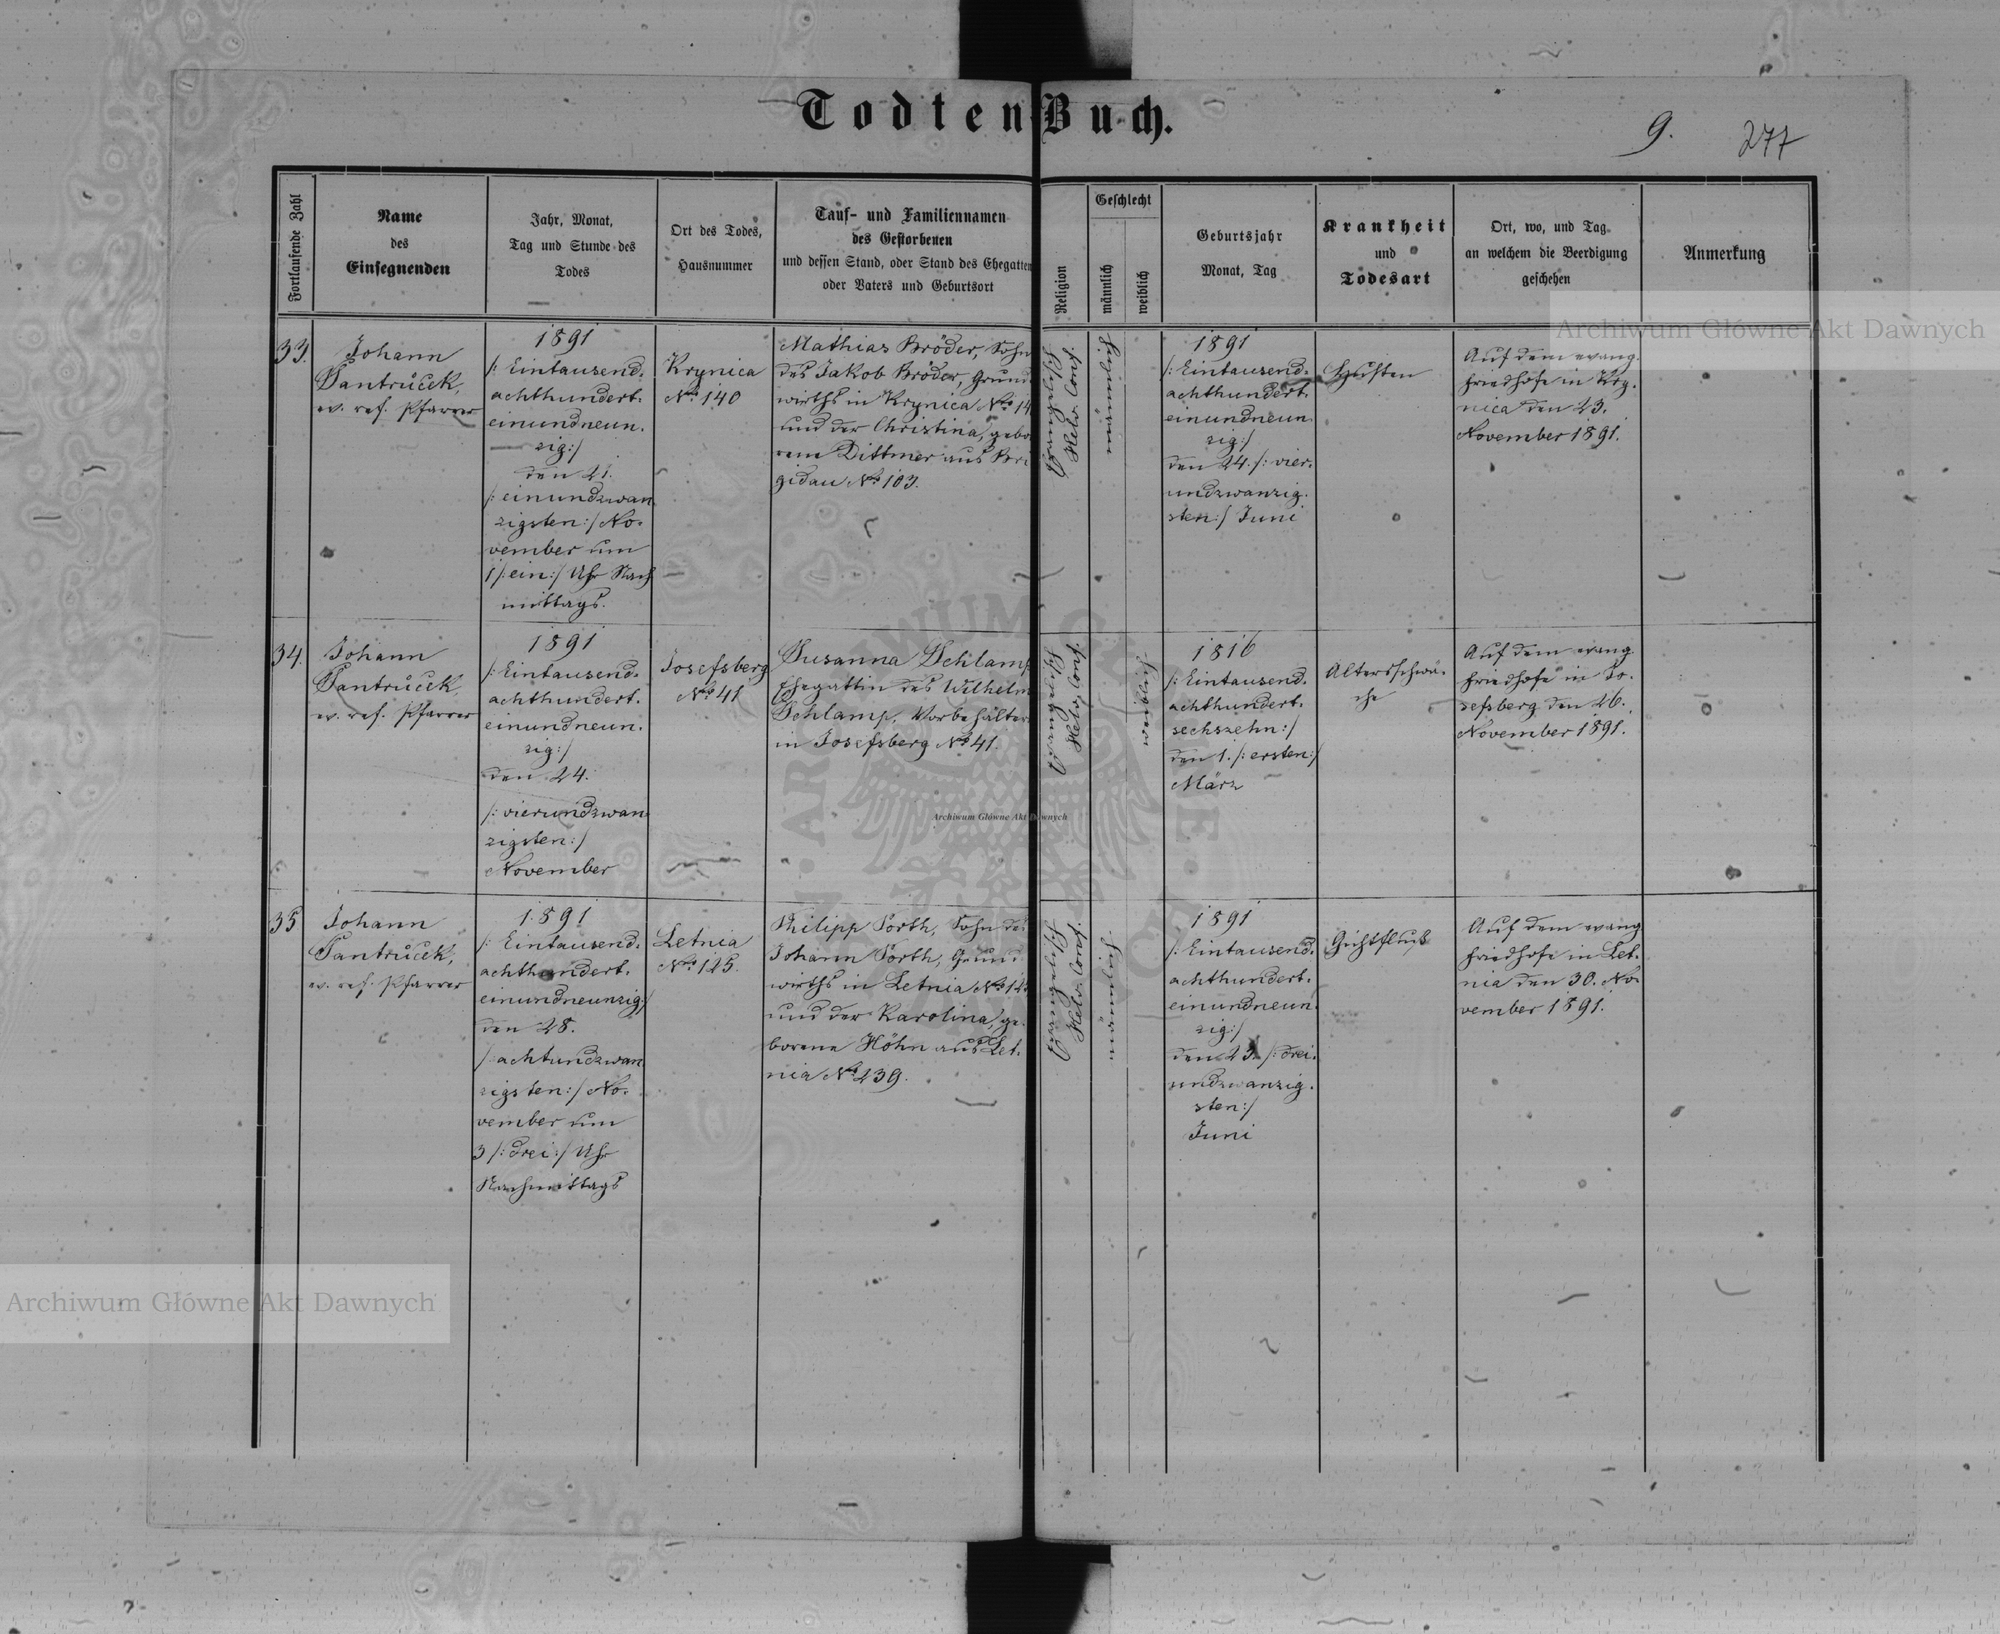 Todten-Buch.
9.
277
Fortlaufende Zahl
Name
des
Einsegnenden
Jahr, Monat,
Tag und Stunde des
Todes
Ort des Todes,
Hausnummer
Tauf- und Familiennamen
des Gestorbenen
und dessen Stand, oder Stand des Ehegatten
oder Vaters und Geburtsort
Religion
Geschlecht
männlich
weiblich
Geburtsjahr
Monat, Tag
Krankheit
und
Todesart
Ort, wo, und Tag
an welchem die Beerdigung
geschehen
Anmerkung
33.
Johann
Pantrůček,
ev. ref. Pfarrer
1891
/: Eintausend-
achthundert-
einundneun-
zig:/
den 21.
/: einundzwan-
zigsten:/ No-
vember um
1 /: ein:/ Uhr Nach
mittags.
Krynica
No 140
Mathias Bröder, Sohn
des Jakob Bröder, Grund
wirths in Krynica No 14
und der Christina, gebo-
rene Dittmer aus Bri
gidau No 103.
Helv. Conf.
1891
/: Eintausend-
achthundert-
einundneun
zig:/
den 24. /: vier-
undzwanzig-
sten:/ Juni
Husten
Auf dem evang.
Friedhofe in Kry-
nica den 23.
November 1891.
34.
Johann
Pantrůček,
ev. ref. Pfarrer
1891
/: Eintausend-
achthundert-
einundneun-
zig:/
den 24.
/: vierundzwan-
zigsten:/
November
Josefsberg
No 41
Susanna Schlamp
Ehegattin des Wilhelm
Schlamp, Vorbehälter
in Josefsberg No 41.
Helv. Conf.
1816
/: Eintausend-
achthundert-
sechszehn:/
den 1. /: ersten:/
März
Altersschwä-
che
Auf dem evang.
Friedhofe in Jo-
sefsberg den 26.
November 1891.
35
Johann
Pantrůček,
ev. ref. Pfarrer
1891
/: Eintausend-
achthundert-
einundneunzig:/
den 28.
/: achtundzwan
zigsten:/ No-
vember um
3 /: drei:/ Uhr
Nachmittags
Letnia
No 125.
Philipp Porth, Sohn des
Johann Porth, Grund
wirths in Letnia No 12
und der Karolina, ge-
borene Höhn aus Let-
nia No 239.
Helv. Conf.
1891
/: Eintausend-
achthundert-
einundneun
zig:/
den 23. /: drei-
undzwanzig-
sten:/
Juni
Gichtfluß
Auf dem evang
Friedhofe in Let-
nia den 30. No-
vember 1891.
Archiwum Główne Akt Dawnych
Archiwum Główne Akt Dawnych
Archiwum Główne Akt Dawnych